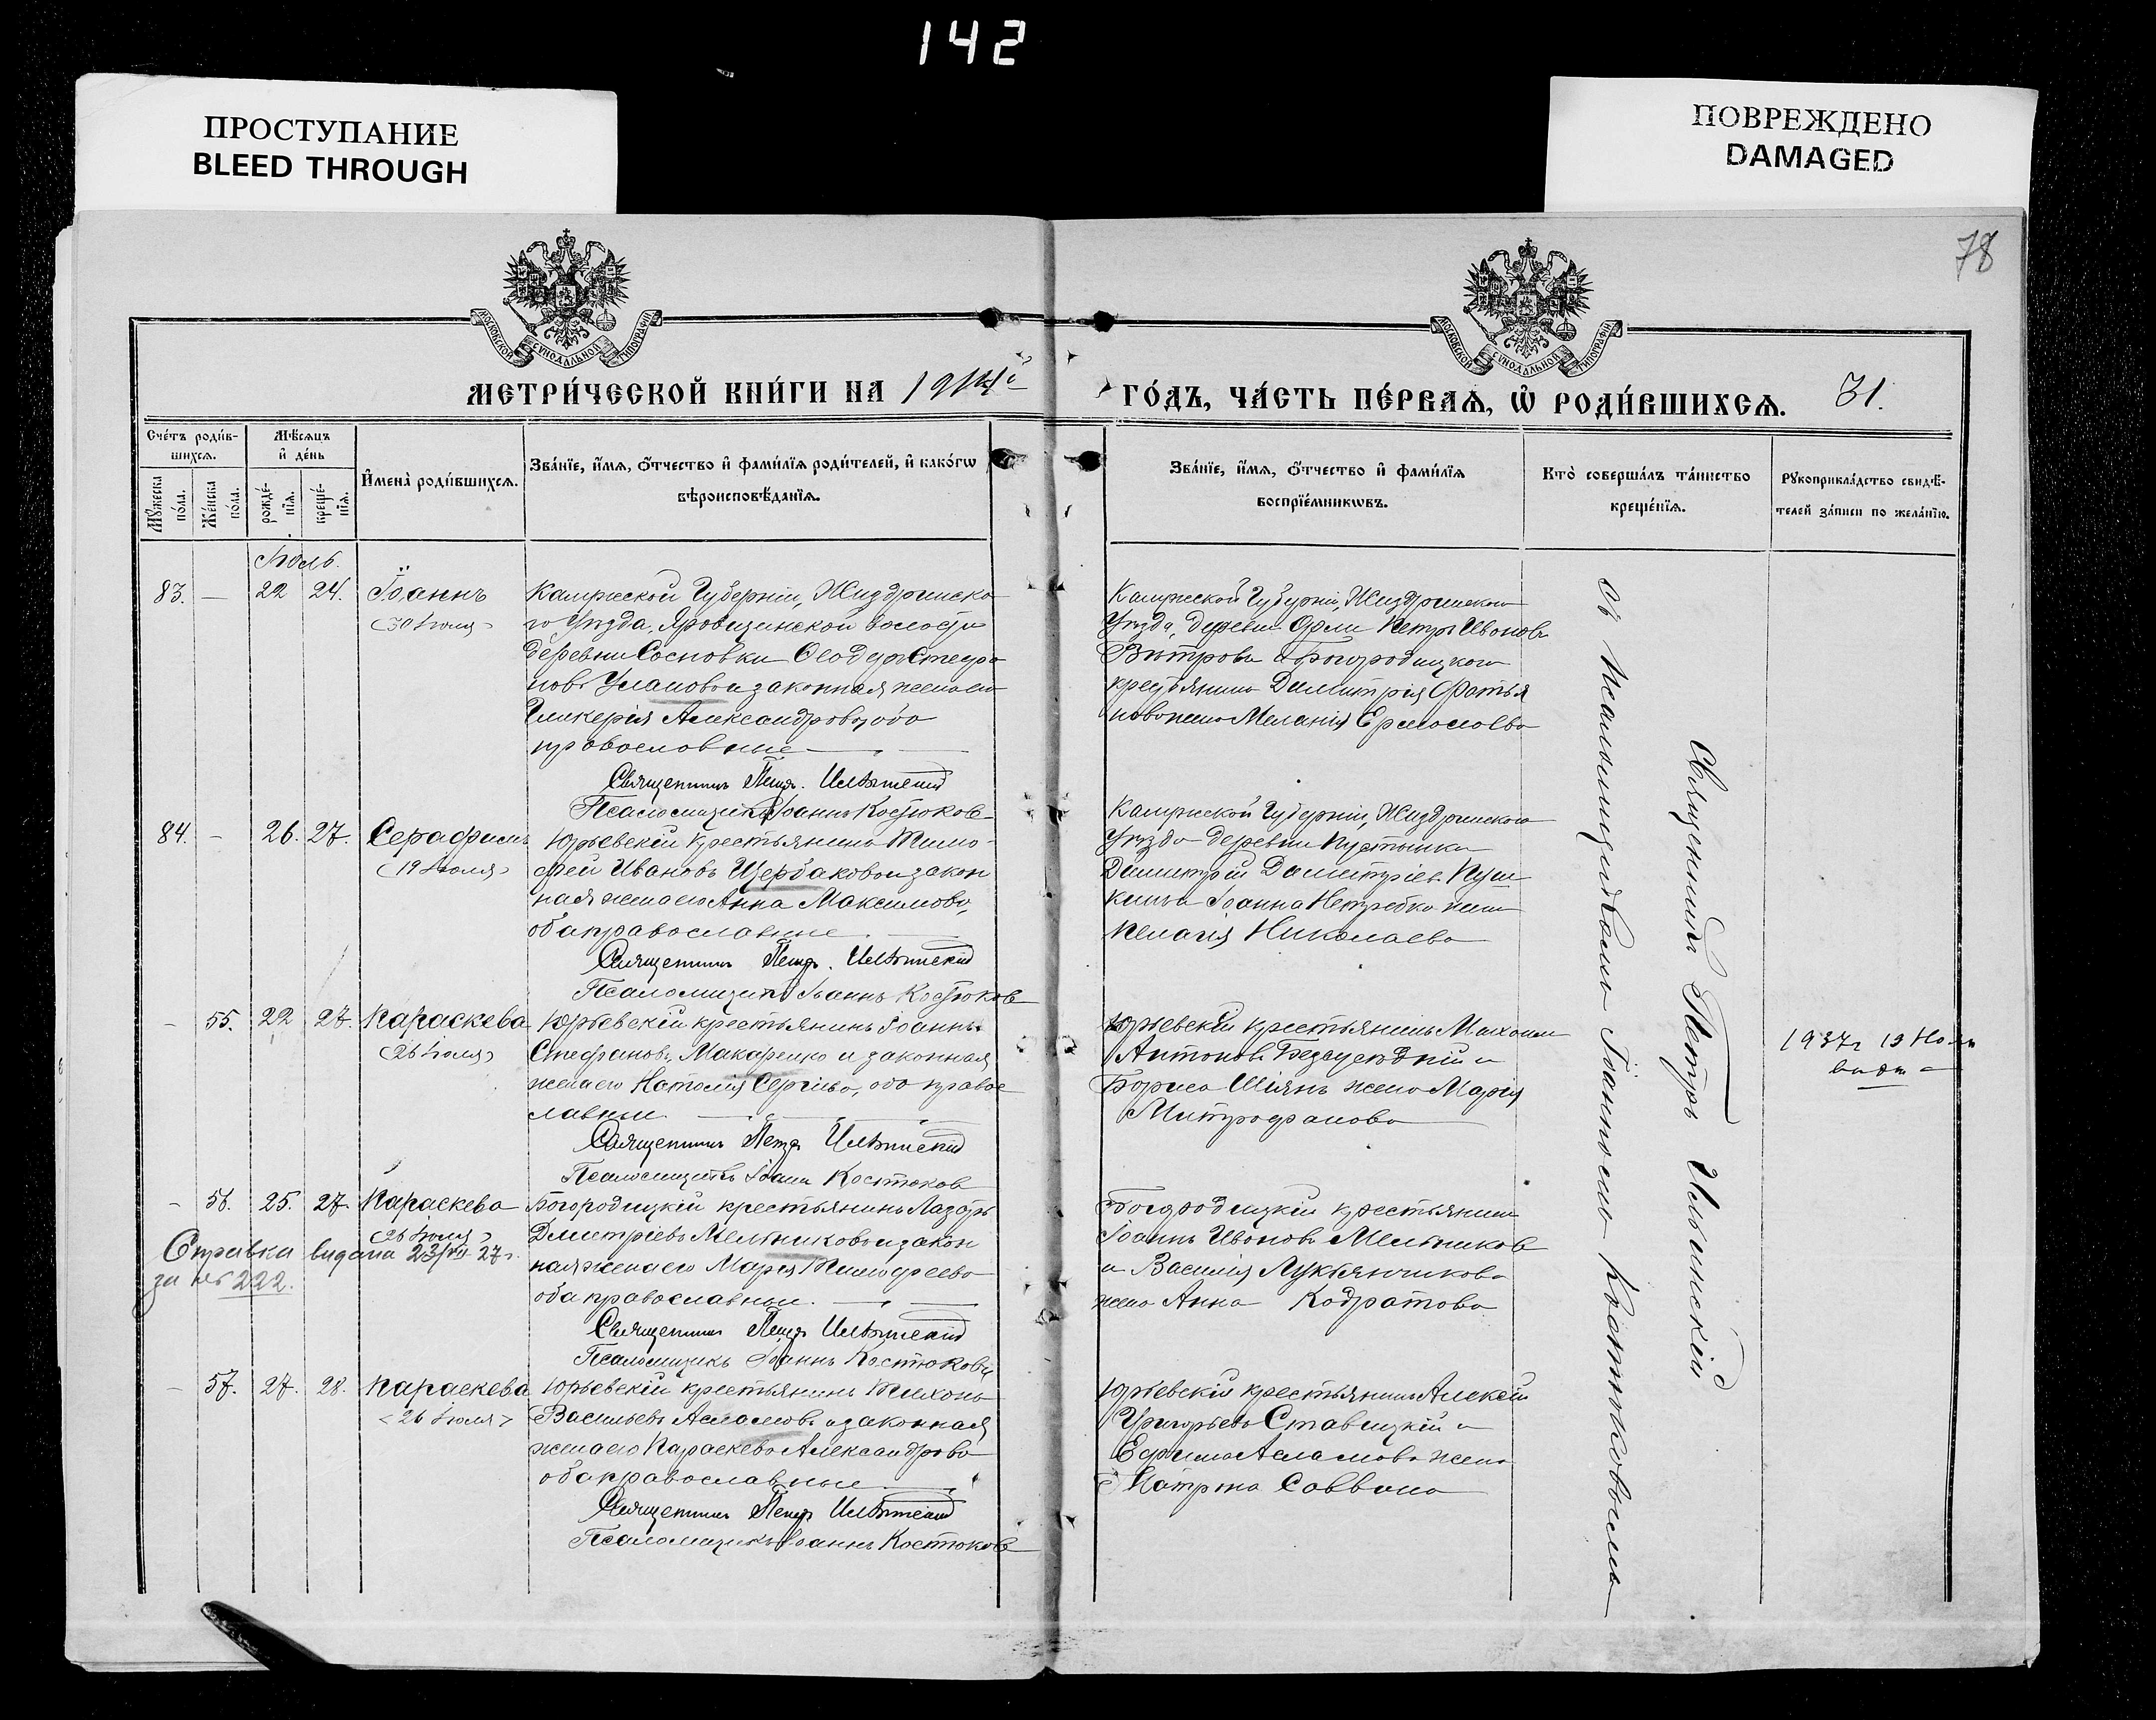 142
ПРОСТУПАНИЕ
BLEED THROUGH
ПОВРЕЖДЕНО
DAMAGED
78
МОСКОВСКОЙ СѴНОДАЛЬНОЙ ТИПОГРАФІИ
МОСКОВСКОЙ СѴНОДАЛЬНОЙ ТИПОГРАФІИ
МЕТРИ́ЧЕСКОЙ КНИ́ГИ НА 1914й
ГО́ДЪ, ЧА́СТЬ ПЕ́РВАѦ, Ѡ҆ РОДИ́ВШИХСѦ. 31.
Сче́тъ роди́в-
шихсѧ.
Мꙋжеска по́ла.
Же́нска по́ла.
Мѣ́сѧцъ
и҆ де́нь
рожде́-
нїѧ.
креще́-
нїѧ.
И҆мена̀ роди́вшихсѧ.
Зва́нїе, и҆́мѧ, ѻ҆́тчество и҆ фами́лїѧ роди́телей, и҆ како́гѡ
вѣроисповѣ́данїѧ.
Зва́нїе, и҆́мѧ, ѻ҆́тчество и҆ фами́лїѧ
воспрїе́мникѡвъ.
Кто̀ соверша́лъ та́инство
креще́нїѧ.
Рꙋкоприкла́дство свидѣ́-
телей за́писи по жела́нїю.
Іюль.
83. — 22 24. Іоаннъ
(30 Іюля)
Калужской Губерніи, Жиздринска
го Уѣзда,
волости
деревни Сосновки Ѳеодоръ Стефа
новъ Улановъ и законная жена его
Гликерія Александрова, оба
православные
Священникъ Петръ Ильинскій
Псаломщикъ Іоаннъ Костюковъ
Калужской Губерніи, Жиздринскаго
Уѣзда, деревни Петръ Ивановъ
Вѣтровъ и Богородицкаго
крестьянина Димитрія Фатья
нова жена Меланія Ермолаева
84. — 26. 27. Серафимъ
(19 Іюля)
Юрьевскій крестьянинъ Тимо-
фей Ивановъ Щербаковъ и закон
ная жена его Анна Максимова,
оба православные
Священникъ Петръ Ильинскій
Псаломщикъ Іоаннъ Костюковъ
Калужской Губерніи, Жиздринскаго
Уѣзда деревни Пустынки
Димитрій Димитріевъ
и Іоанна жена
Пелагія Николаева
— 55. 22 27. Параскева
(26 Іюля)
Юрьевскій крестьянинъ Іоаннъ
Стефановъ Макаренко и законная
жена его Наталія Сергіева, оба правос
лавные
Священникъ Петръ Ильинскій
Псаломщикъ Іоаннъ Костюковъ
Юрьевскій крестьянинъ Михаилъ
Антоновъ и
Бориса жена Марія
Митрофанова
1937г 19
— 56. 25. 27. Параскева
(26 Іюля)
Справка видана 23/VIII 27г.
за № 222.
Богородицкій крестьянинъ Лазарь
Дмитріевъ Мельниковъ и закон
ная жена его Марія Тимофеева
оба православные.
Священникъ Петръ Ильинскій
Псаломщикъ Іоаннъ Костюковъ
Богородицкій крестьянинъ
Іоаннъ Ивановъ Мельниковъ
и Василія Лукьянчикова
жена Анна Кодратова
— 57. 27. 28. Параскева
(26 Іюля)
Юрьевскій крестьянинъ Тихонъ
Васильевъ Асламовъ и законная
жена его Параскева Александрова
оба православные
Священникъ Петръ Ильинскій
Псаломщикъ Іоаннъ Костюковъ
Юрьевскій крестьянинъ Алексій
Григорьевъ Ставицкій и
Ефима Асламова жена
Саввина
Съ псаломщикомъ Іоанномъ Костюковымъ
Священникъ Петръ Ильинскій